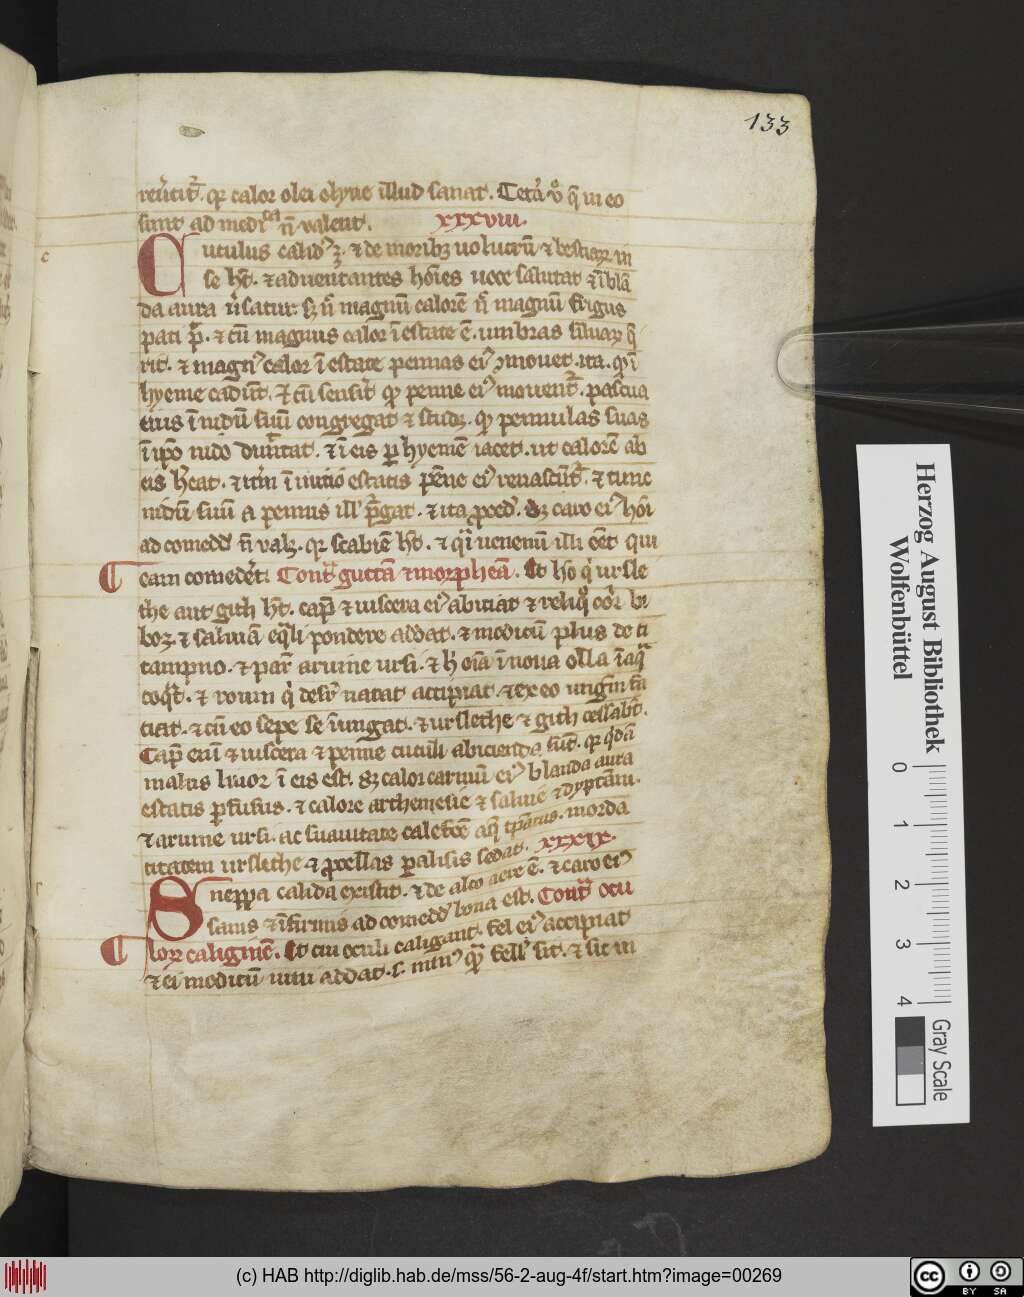 133
reuͥtit᷑. qͣ calor olei olyue illud sanat. Cetᷓ ỽͦ q̄ in eo
sunt ad medicͣ n̄ valent. xxxviii.
Cutulus calidꝰ ꝫ. ⁊ de moribꝫ uolucrū ⁊ bestiaꝝ in
se hꝫ. ⁊ aduentantes hoīes uoce salutat ⁊ ī blā
da aura ūsatur. sꝫ n̄ magnū calorē n̄ magnū frigus
pati pͭ. ⁊ cū magnus calor ī estate ē. umbras siluaꝝ q̄
rit. ⁊ magnꝰ calor ī estate pennas eiꝰ ꝓmouet. ita. qͥ ī
hyeme cadūt. ⁊ cū sensit qͩ penne eiꝰ mouent᷑. pascua
eius ī nidū suū congregat ⁊ studꝫ. qͩ pennulas suas
ī ipͦ nido dimittat. ⁊ ī eis ꝑ hyemē iacet. ut calorē ab
eis hēat. ⁊ itͫ ī initio estatis pēne eiꝰ renascūt᷑. ⁊ tunc
nidū suū a pennis ill' pᷓgat. ⁊ ita ꝓced'. Sꝫ caro eiꝰ hoī
ad comedd' n̄ valꝫ. qͣ scabiē hꝫ. ⁊ qͥ uenenū illi eēt qui
eam comedēt. Contᷓ guttā ⁊ morpheā. St hō qͥ ursle
the aut gith hꝫ. cap̄ ⁊ uiscera eiꝰ abiciat ⁊ reliqͫ cōr bi
boꝫ. ⁊ saluiā eqͣli pondere addat. ⁊ modicū plus de ti
tampno. ⁊ par̄ aruine ursi. ⁊ h' oīa ī noua olla ī aqͣ
coqͣt. ⁊ votum qͥ desuꝑ natat accipiat. ⁊ ex eo ungm̄ fa
ciat. ⁊ cū eo sepe se īungat. ⁊ urslethe ⁊ gith cessabt᷑.
Cap̄ enī ⁊ uiscera ⁊ penne cuculi abicienda sūt. qͣ qͥdā
malus liuor ī eis est. sꝫ calor carniū eiꝰ blanda aura
estatis ꝑfusus. ⁊ calore arthemesie ⁊ saluie ⁊ dyptāni.
⁊ aruine ursi. ac suauitate calefcē aq̄ tꝑatus. morda
citatem urslethe ⁊ ꝓcellas ꝑalisis sedat. xxxix.
Sneppa calida existit. ⁊ de alto aere ē. ⁊ caro eiꝰ
sanis ⁊ īfirmis ad comedd' bona est. Contᷓ ocu
loꝝ caliginē. St cui oculi caligant. fel eiꝰ accipiat
⁊ ei modicū uini addat. s. minꝰ qͣ fell' sit. ⁊ sic in
Herzog August Bibliothek
Wolfenbüttel
0 1 2 3 4
Gray Scale
(c) HAB http://diglib.hab.de/mss/56-2-aug-4f/start.htm?image=00269
cc BY SA